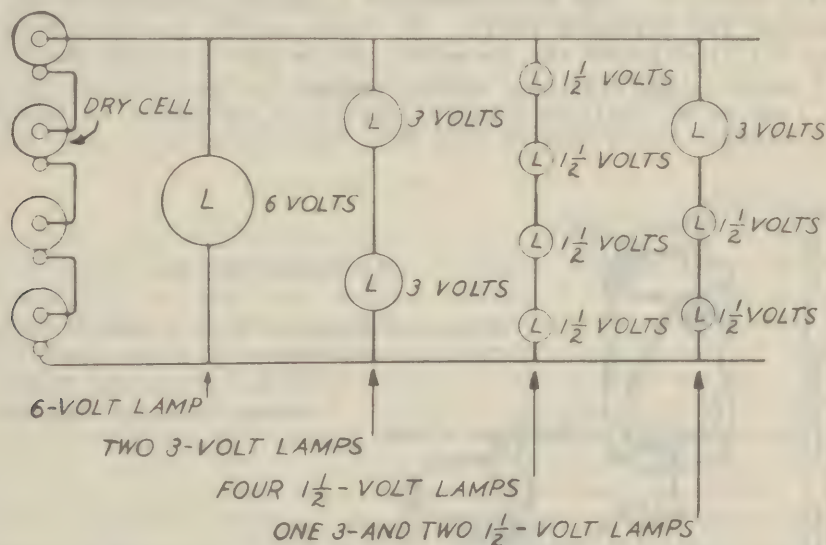 DRY CELL
L
6 VOLTS
L 3 VOLTS
L 3 VOLTS
L 1 1/2 VOLTS
L 1 1/2 VOLTS
L 1 1/2 VOLTS
L 1 1/2 VOLTS
L 3 VOLTS
L 1 1/2 VOLTS
L 1 1/2 VOLTS
6-VOLT LAMP
TWO 3-VOLT LAMPS
FOUR 1 1/2-VOLT LAMPS
ONE 3-AND TWO 1 1/2-VOLT LAMPS